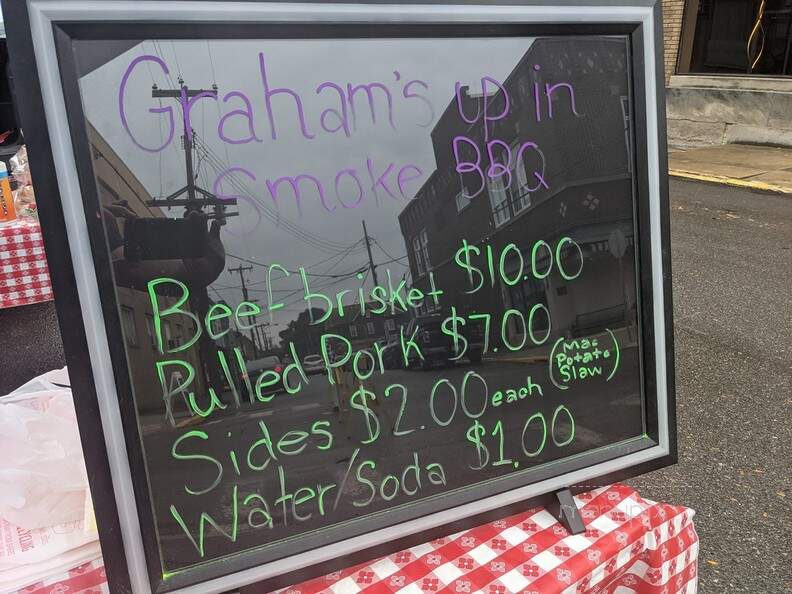 Graham's up in
Smoke BBQ
Beef brisket $10.00
Pulled Pork $7.00
Sides $2.00 each (Mac
Potato
Slaw)
Water/Soda $1.00